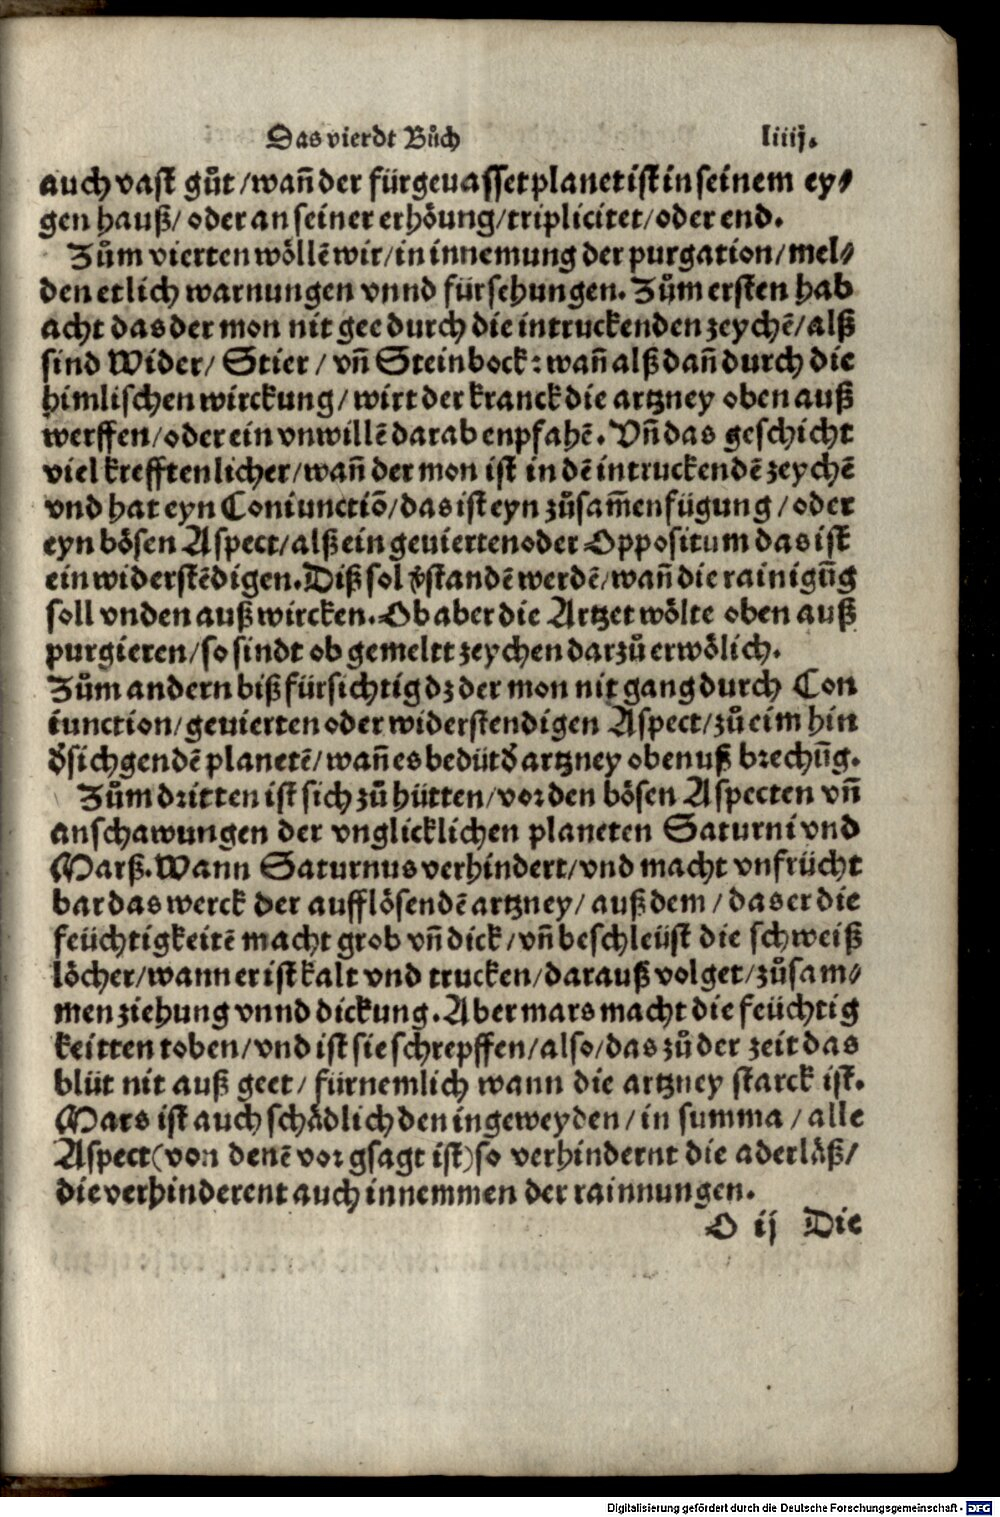 Das vierdt Bůch liiij.
auch vast gůt / wañ der fürgeuasset planet ist in seinem ey⸗
gen hauß / oder an seiner erhöung / triplicitet / oder end.
Zům vierten wöllē wir / in innemung der purgation / mel⸗
den etlich warnungen vnnd fürsehungen. Zům ersten hab
acht das der mon nit gee durch die intruckenden zeychē / alß
sind Wider / Stier / vñ Steinbock: wañ alß dañ durch die
himlischen wirckung / wirt der kranck die artzney oben auß
werffen / oder ein vnwillē darab enpfahē. Vñ das geschicht
viel krefftenlicher / wañ der mon ist in dē intruckendē zeychē
vnd hat eyn Coniunctiō / das ist eyn zůsam̄enfügung / oder
eyn bösen Aspect / alß ein geuierten oder Oppositum das ist
ein widerstēdigen. Diß sol v̊standē werdē / wañ die rainigūg
soll vnden auß wircken. Ob aber die Artzet wölte oben auß
purgieren / so sindt ob gemeltt zeychen darzů erwölich.
Zům andern biß fürsichtig dz der mon nit gang durch Con
iunction / geuierten oder widerstendigen Aspect / zů eim hin
d̊sichgendē planetē / wañ es bedüt d̊ artzney oben uß brechūg.
Zům dritten ist sich zů hütten / vor den bösen Aspecten vñ
anschawungen der vnglicklichen planeten Saturni vnd
Marß. Wann Saturnus verhindert / vnd macht vnfrücht
bar das werck der aufflösendē artzney / auß dem / das er die
feüchtigkeitē macht grob vñ dick / vñ beschleüst die schweiß
löcher / wann er ist kalt vnd trucken / darauß volget / zůsam⸗
men ziehung vnnd dickung. Aber mars macht die feüchtig
keitten toben / vnd ist sie schrepffen / also / das zů der zeit das
blüt nit auß geet / fürnemlich wann die artzney starck ist.
Mars ist auch schädlich den ingeweyden / in summa / alle
Aspect (von denē vor gsagt ist) so verhindernt die aderläß /
die verhinderent auch innemmen der rainnungen.
O ij Die
Digitalisierung gefördert durch die Deutsche Forschungsgemeinschaft - DFG